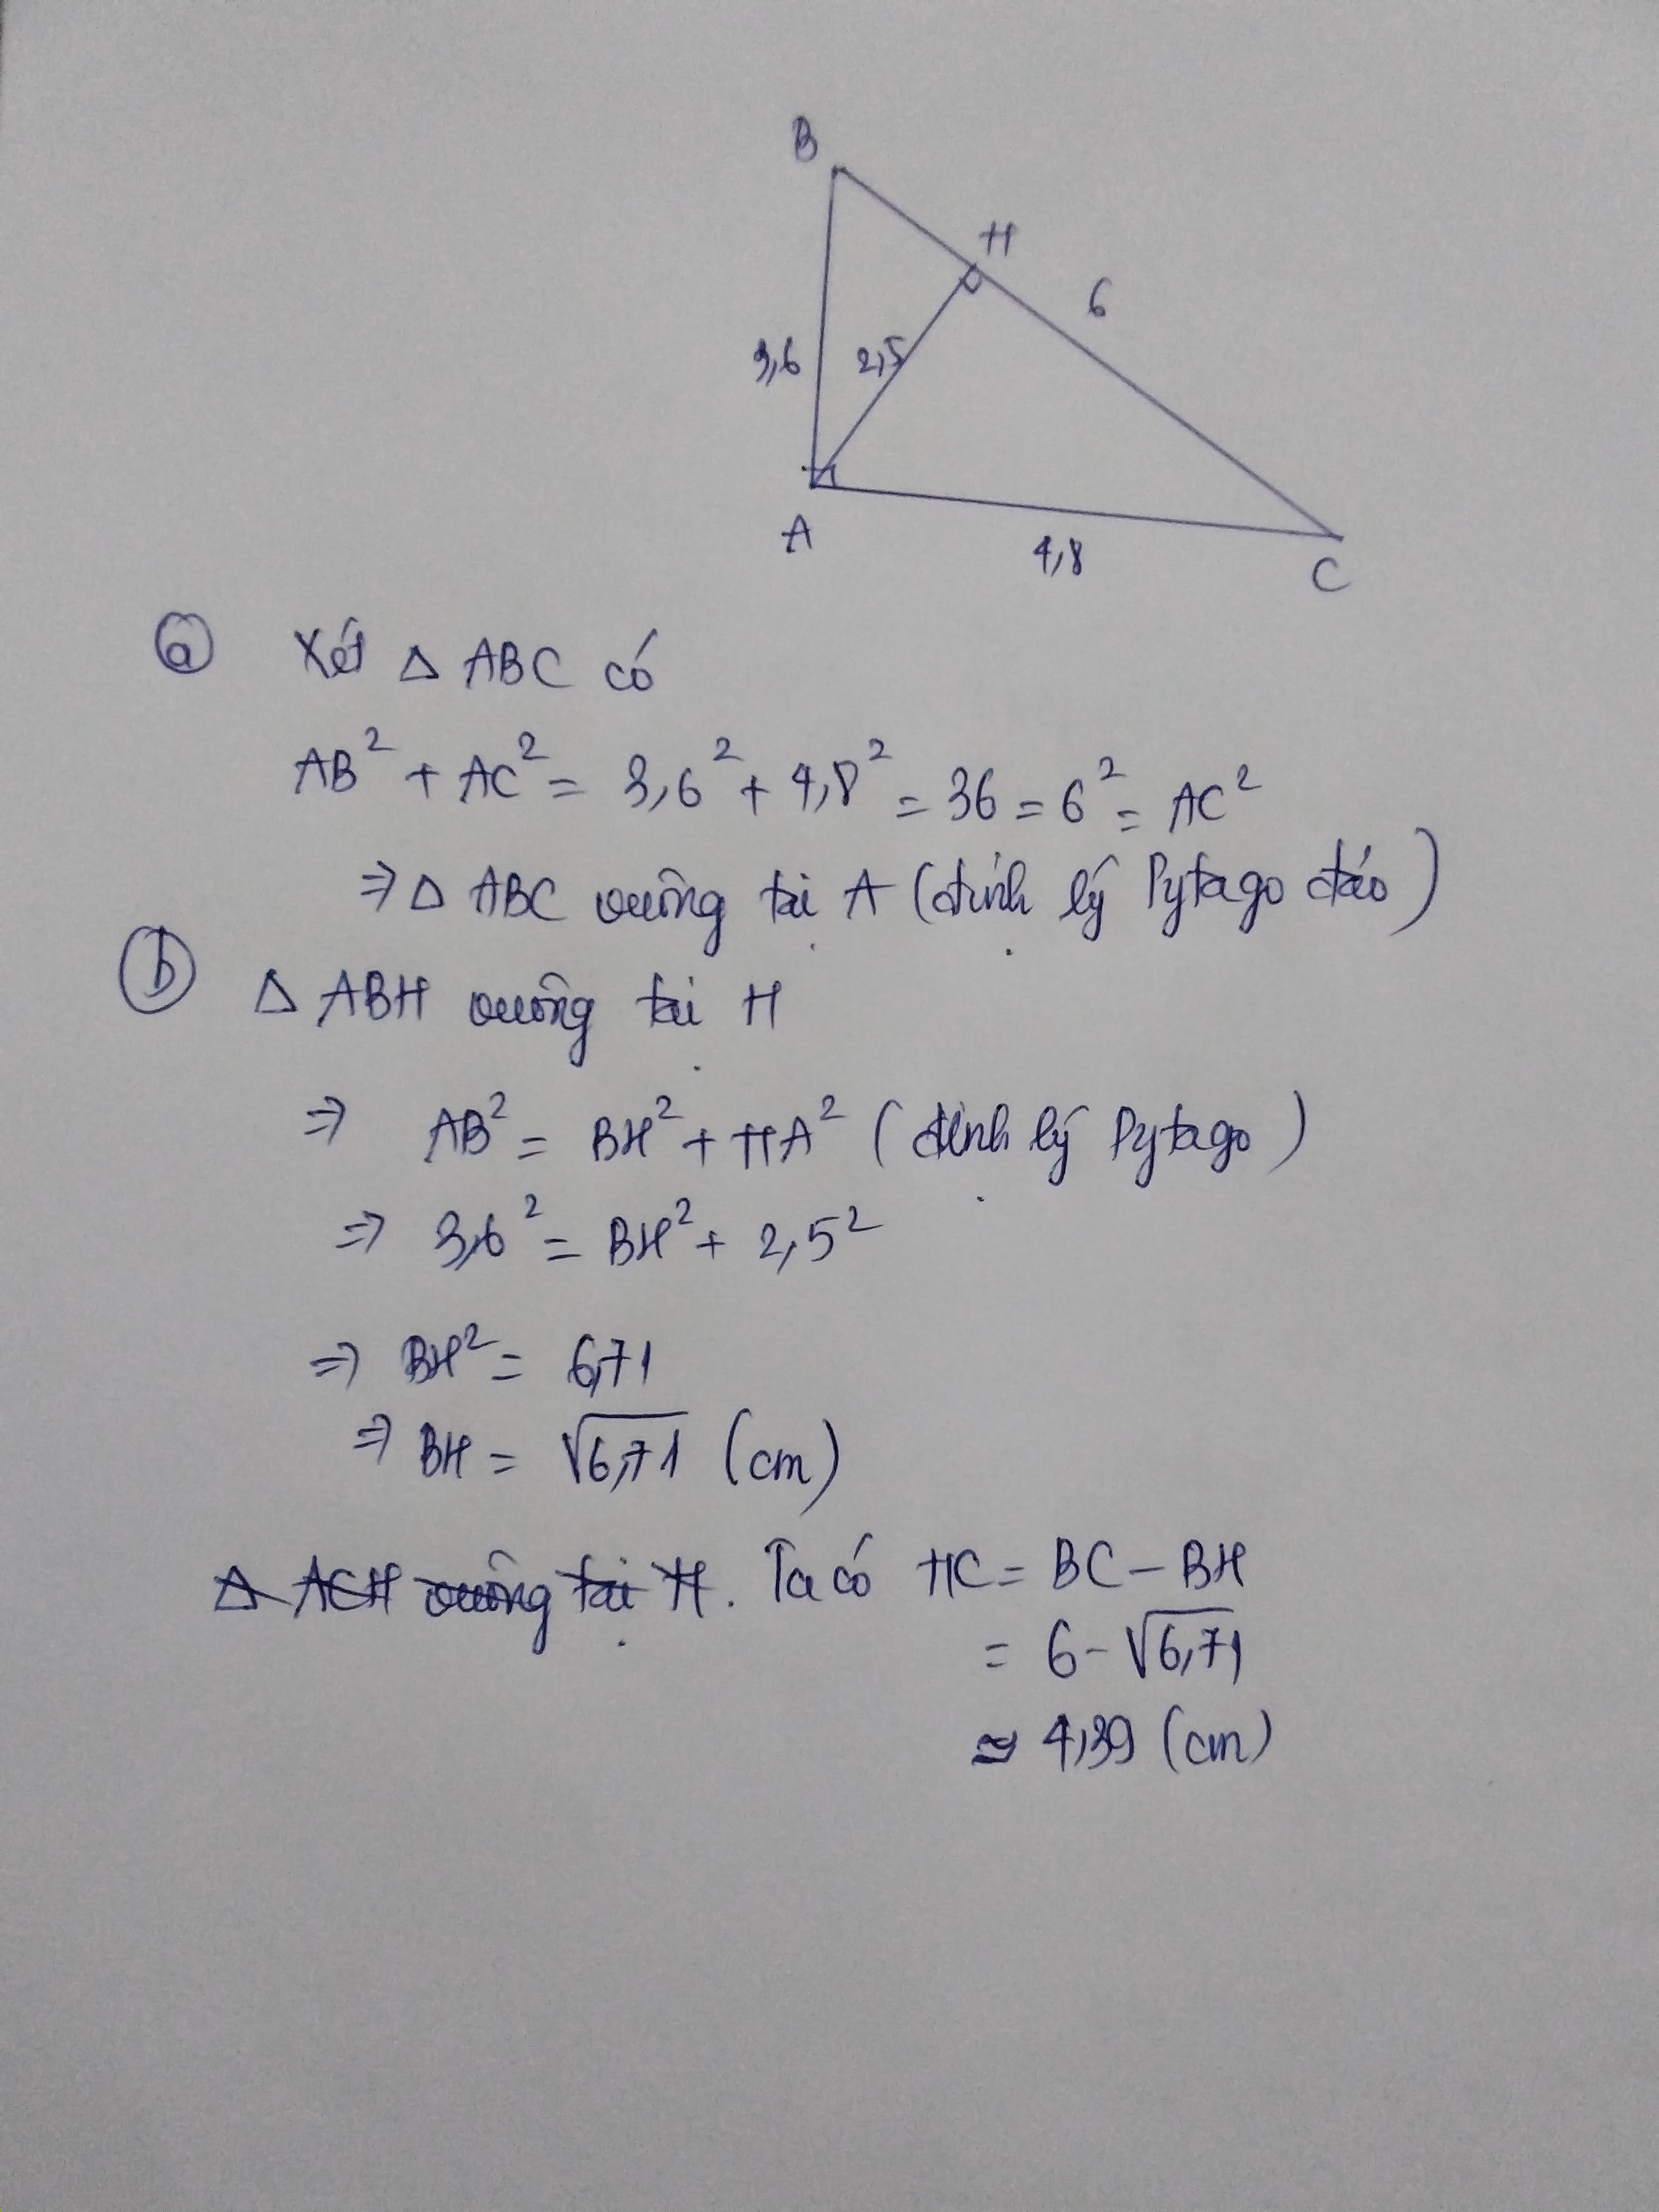 B
H
6
3,6
2,5
A
4,8
C
a Xét Δ ABC có
AB² + AC² = 3,6² + 4,8² = 36 = 6² = AC²
⇒ Δ ABC vuông tại A (định lý Pytago đảo)
b Δ ABH vuông tại H
⇒ AB² = BH² + HA² (định lý Pytago)
⇒ 3,6² = BH² + 2,5²
⇒ BH² = 6,71
⇒ BH = √6,71 (cm)
Δ ACH vuông tại H. Ta có HC = BC - BH
= 6 - √6,71
≈ 4,39 (cm)